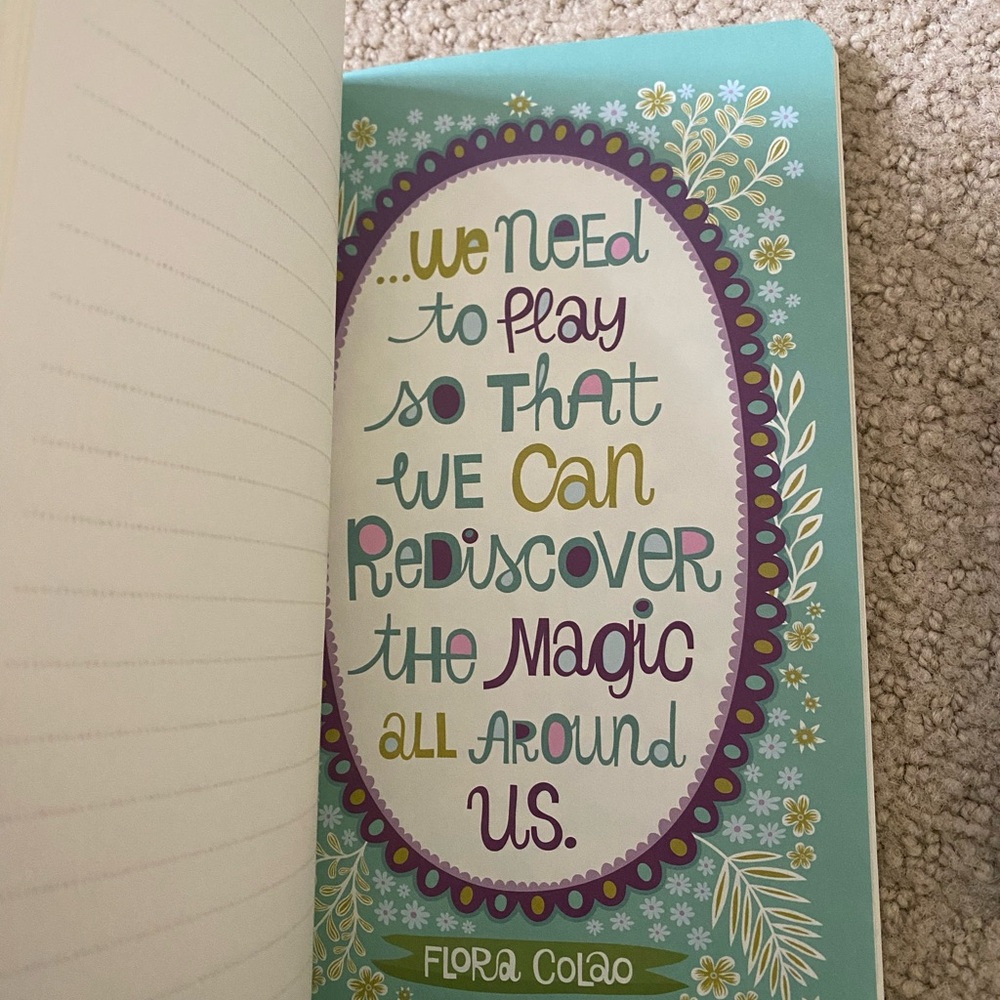 ...We NeeD
to Play
so That
WE Can
ReDiscoveR
the Magic
all Around
US.
Flora Colao